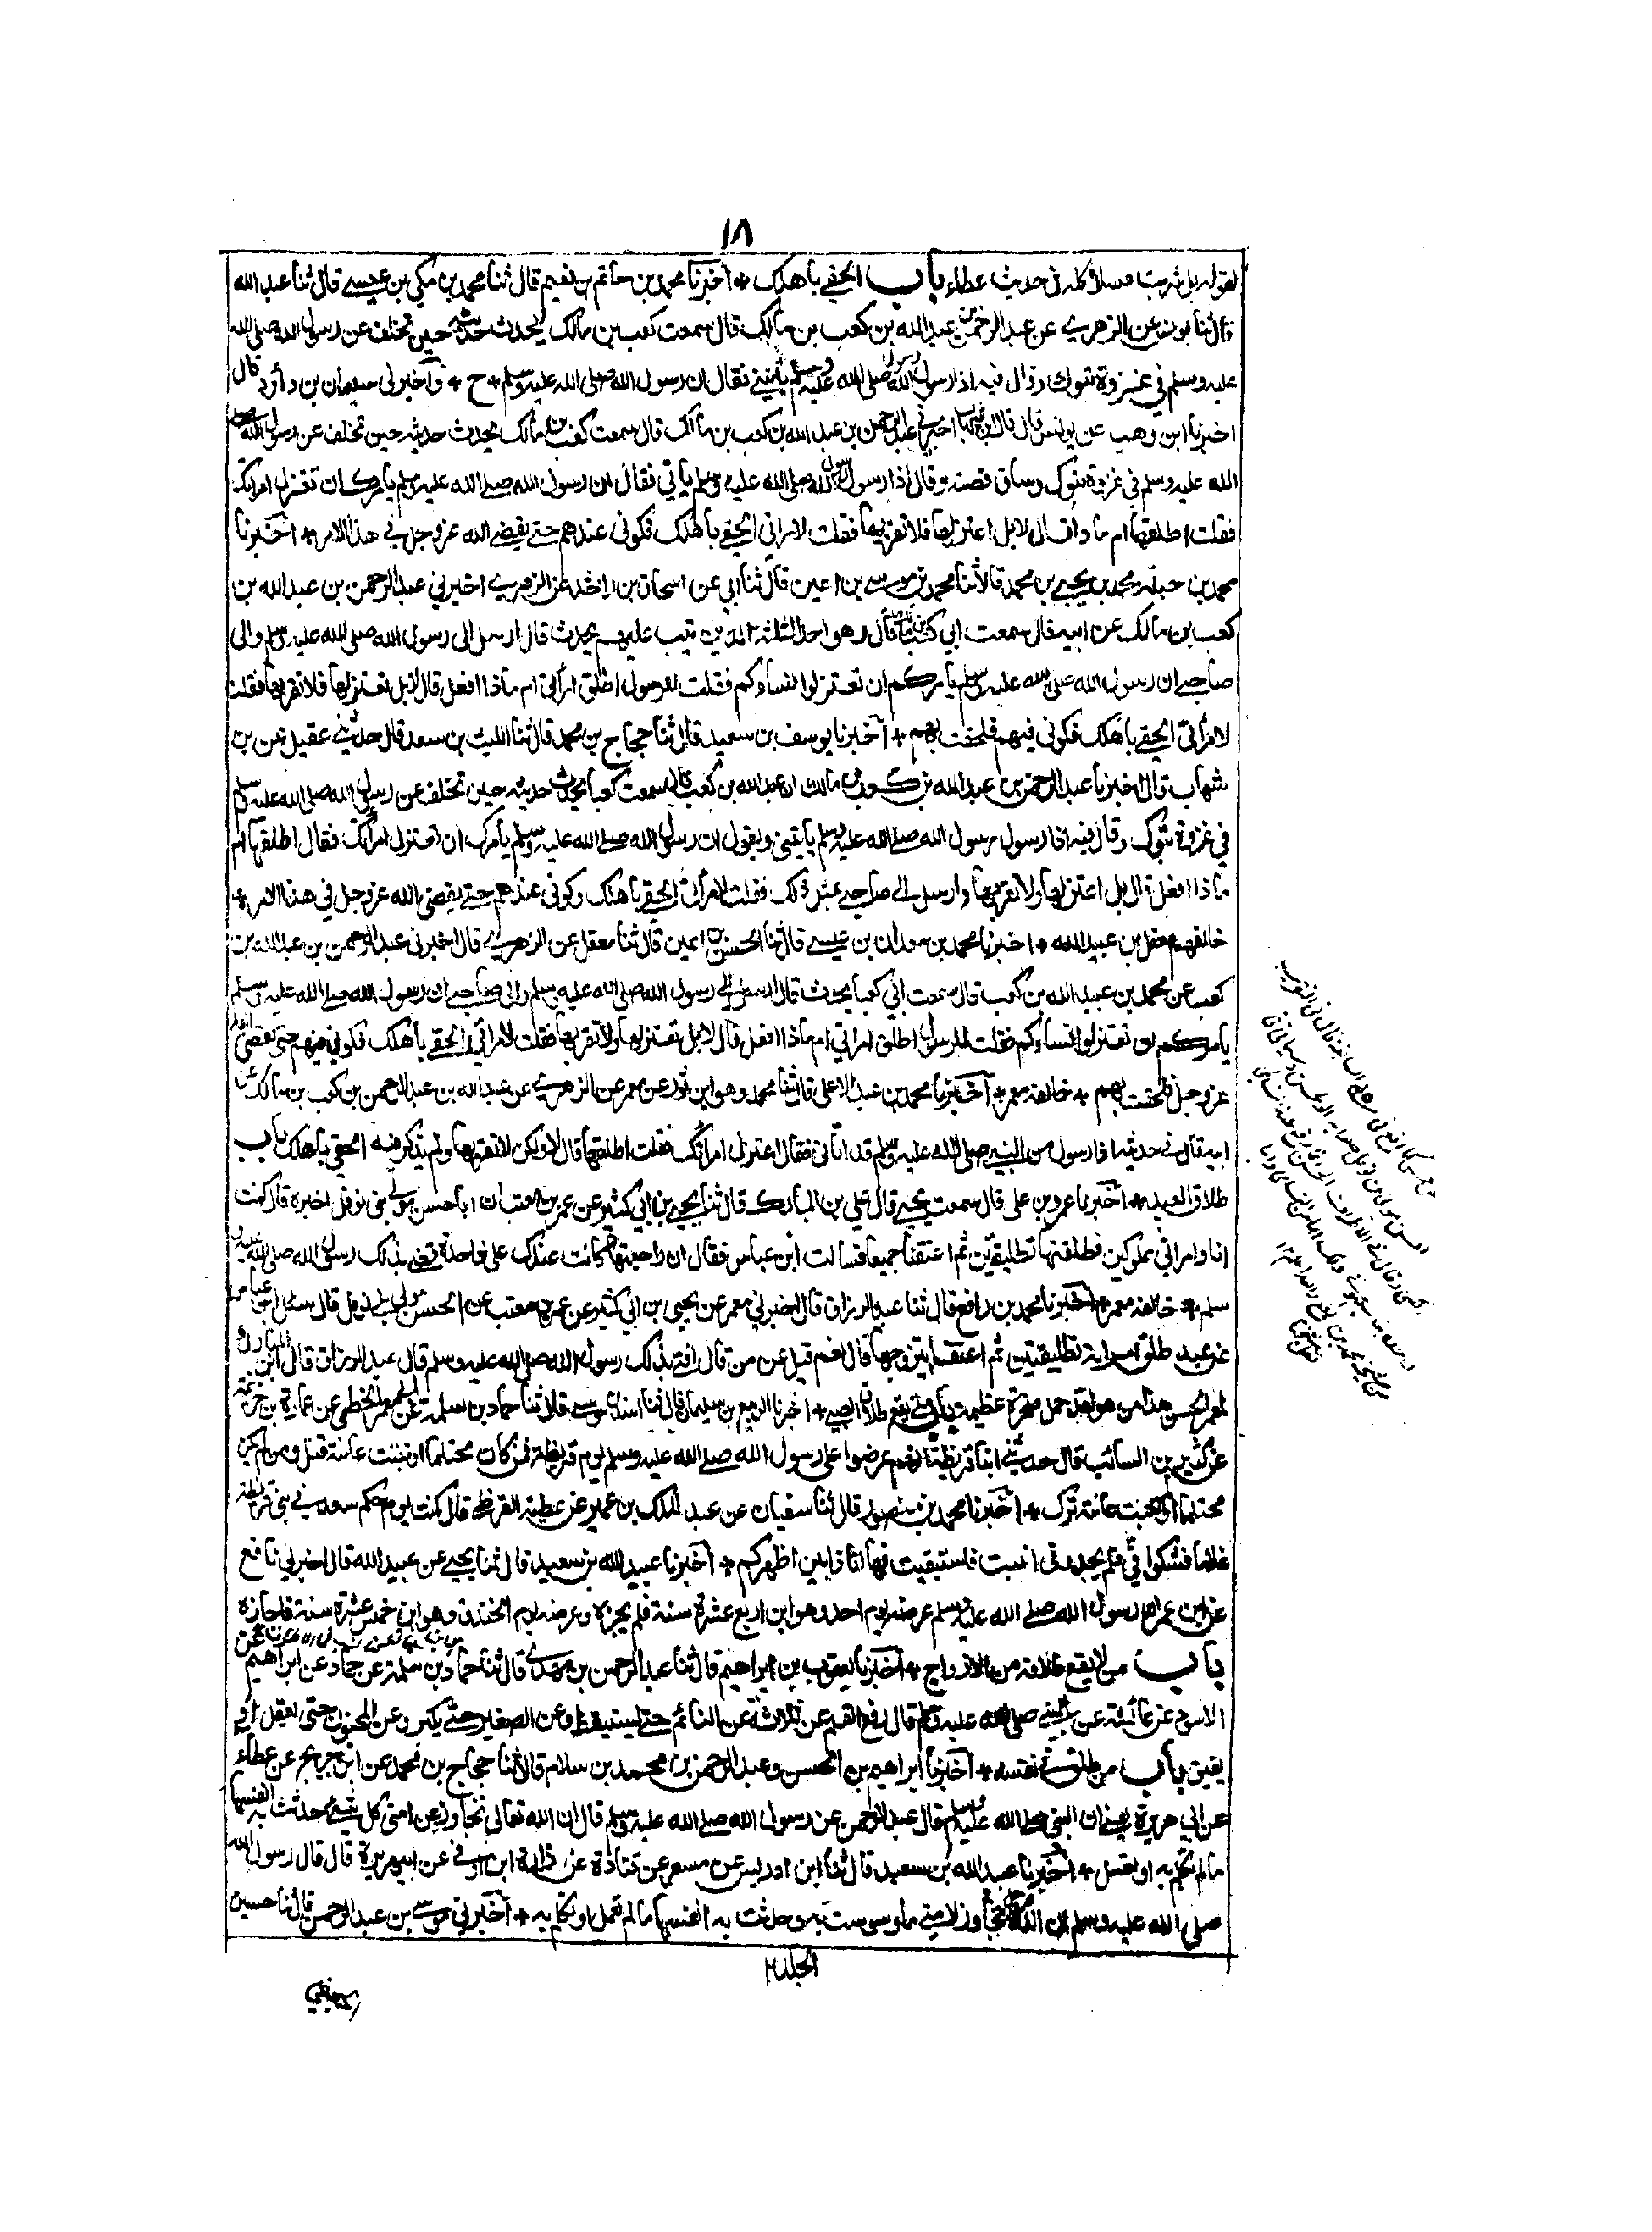 ١٨
لقوله بل شربت عسلا كله في حديث عطاء باب الحقي باهلك * اخبرنا محمد بن حاتم بن نعيم قال ثنا محمد بن مكي بن عيسى قال ثنا عبد الله
قال ثنا يونس عن الزهري عن عبد الرحمن بن عبد الله بن كعب بن مالك قال سمعت كعب بن مالك يحدث حديثه حين تخلف عن رسول الله صلى الله
عليه وسلم في غزوة تبوك وقال فيه اذا رسول رسول الله صلى الله عليه وسلم يأتيني فقال ان رسول الله صلى الله عليه وسلم * ح * واخبرني سليمان بن داود قال
اخبرنا ابن وهب عن يونس قال قال ابن شهاب اخبرني عبد الرحمن بن عبد الله بن كعب بن مالك قال سمعت كعب بن مالك يحدث حديثه حين تخلف عن رسول الله صلى
الله عليه وسلم في غزوة تبوك وساق قصته وقال اذا رسول رسول الله صلى الله عليه وسلم يأتي فقال ان رسول الله صلى الله عليه وسلم يأمرك ان تعتزل امرأتك
فقلت اطلقها ام ماذا قال لا بل اعتزلها فلا تقربها فقلت لامرأتي الحقي باهلك فكوني عندهم حتى يقضي الله عز وجل في هذا الامر * اخبرنا
محمد بن جبلة ومحمد بن يحيى بن محمد قالا ثنا محمد بن موسى بن اعين قال ثنا ابي عن اسحاق بن راشد عن الزهري اخبرني عبد الرحمن بن عبد الله بن
كعب بن مالك عن ابيه قال سمعت ابي كعب بن مالك قال وهو احد الثلثة الذين تيب عليهم يحدث قال ارسل الى رسول الله صلى الله عليه وسلم والى
صاحبي ان رسول الله صلى الله عليه وسلم يأمركم ان تعتزلوا نساءكم فقلت للرسول اطلق امرأتي ام ماذا افعل قال لا بل تعتزلها فلا تقربها فقلت
لامرأتي الحقي باهلك فكوني فيهم فلحقت بهم * اخبرنا يوسف بن سعيد قال ثنا حجاج بن محمد قال ثنا الليث بن سعد قال حدثني عقيل عن بن
شهاب قال اخبرنا عبد الرحمن بن عبد الله بن كعب بن مالك ان عبد الله بن كعب قال سمعت كعبا يحدث حديثه حين تخلف عن رسول الله صلى الله عليه وسلم
في غزوة تبوك وقال فيه اذا رسول رسول الله صلى الله عليه وسلم يأتيني ويقول ان رسول الله صلى الله عليه وسلم يأمرك ان تعتزل امرأتك فقال اطلقها ام
ماذا افعل قال بل اعتزلها ولا تقربها وارسل الى صاحبي بمثل ذلك فقلت لامرأتي الحقي باهلك وكوني عندهم حتى يقضي الله عز وجل في هذا الامر *
خالفهم معقل بن عبيد الله * اخبرنا محمد بن معدان بن عيسى قال ثنا الحسن بن اعين قال ثنا معقل عن الزهري قال اخبرني عبد الرحمن بن عبد الله بن
كعب عن محمد بن عبيد الله بن كعب قال سمعت ابي كعبا يحدث قال ارسل الى رسول الله صلى الله عليه وسلم والى صاحبي ان رسول الله صلى الله عليه وسلم
يأمركم ان تعتزلوا نساءكم فقلت للرسول اطلق امرأتي ام ماذا افعل قال لا بل تعتزلها ولا تقربها فقلت لامرأتي الحقي باهلك فكوني فيهم حتى يقضي الله
عز وجل فلحقت بهم * خالفه معمر * اخبرنا محمد بن عبد الاعلى قال ثنا محمد وهو ابن ثور عن معمر عن الزهري عن عبد الله بن عبد الرحمن بن كعب بن مالك عن
ابيه قال في حديثه اذا رسول من النبي صلى الله عليه وسلم قد اتاني فقال اعتزل امرأتك فقلت اطلقها قال لا ولكن لا تقربها ولم يذكر فيه الحقي باهلك باب
طلاق العبد * اخبرنا عمرو بن علي قال سمعت يحيى قال علي بن المبارك قال ثنا يحيى بن ابي كثير عن عمر بن معتب ان ابا حسن مولى بني نوفل اخبره قال كنت
انا وامرأتي مملوكين فطلقتها تطليقتين ثم اعتقنا جميعا فسالت ابن عباس فقال ان راجعتها كانت عندك على واحدة قضى بذلك رسول الله صلى الله عليه و
سلم * خالفه معمر * اخبرنا محمد بن رافع قال ثنا عبد الرزاق قال اخبرني معمر عن يحيى بن ابي كثير عن عمر بن معتب عن الحسن مولى بني نوفل قال سئل ابن عباس
عن عبد طلق امراته تطليقتين ثم اعتقها ايتزوجها قال نعم قيل عن من قال افتى بذلك رسول الله صلى الله عليه وسلم قال عبد الرزاق قال ابن المبارك
لمعمر الحسن هذا من هو لقد حمل صخرة عظيمة باب متى يقع طلاق الصبي * اخبرنا الربيع بن سليمان قال ثنا اسد بن موسى قال ثنا حماد بن سلمة عن ابي جعفر الخطمي عن عمارة بن خزيمة
عن كثير بن السائب قال حدثني ابنا قريظة انهم عرضوا على رسول الله صلى الله عليه وسلم يوم قريظة فمن كان محتلما او نبتت عانته قتل ومن لم يكن
محتلما او نبتت عانته ترك * اخبرنا محمد بن منصور قال ثنا سفيان عن عبد الملك بن عمير عن عطية القرظي قال كنت يوم حكم سعد في بني قريظة
غلاما فشكوا في فلم يجدوني انبت فاستبقيت فها انا ذا بين اظهركم * اخبرنا عبيد الله بن سعيد قال ثنا يحيى عن عبيد الله قال اخبرني نافع
عن ابن عمر ان رسول الله صلى الله عليه وسلم عرضه يوم احد وهو ابن اربع عشرة سنة فلم يجزه وعرضه يوم الخندق وهو ابن خمس عشرة سنة فاجازه
باب من لا يقع طلاقه من الازواج * اخبرنا يعقوب بن ابراهيم قال ثنا عبد الرحمن بن مهدي قال ثنا حماد بن سلمة عن حماد عن ابراهيم عن
الاسود عن عائشة عن النبي صلى الله عليه وسلم قال رفع القلم عن ثلاثة عن النائم حتى يستيقظ وعن الصغير حتى يكبر وعن المجنون حتى يعقل او
يفيق باب من طلق في نفسه * اخبرنا ابراهيم بن الحسن وعبد الرحمن بن محمد بن سلام قالا ثنا حجاج بن محمد عن ابن جريج عن عطاء
عن ابي هريرة ان النبي صلى الله عليه وسلم قال عبد الرحمن عن رسول الله صلى الله عليه وسلم قال ان الله تعالى تجاوز عن امتي كل شيء حدثت به انفسها
ما لم تكلم به او تعمل * اخبرنا عبيد الله بن سعيد قال ثنا ابن ادريس عن مسعر عن قتادة عن زرارة ابن اوفى عن ابي هريرة قال قال رسول الله
صلى الله عليه وسلم ان الله عز وجل تجاوز لامتي ما وسوست به وحدثت به انفسها ما لم تعمل او تكلم به * اخبرني موسى بن عبد الرحمن قال ثنا حسين
الجلد ٢